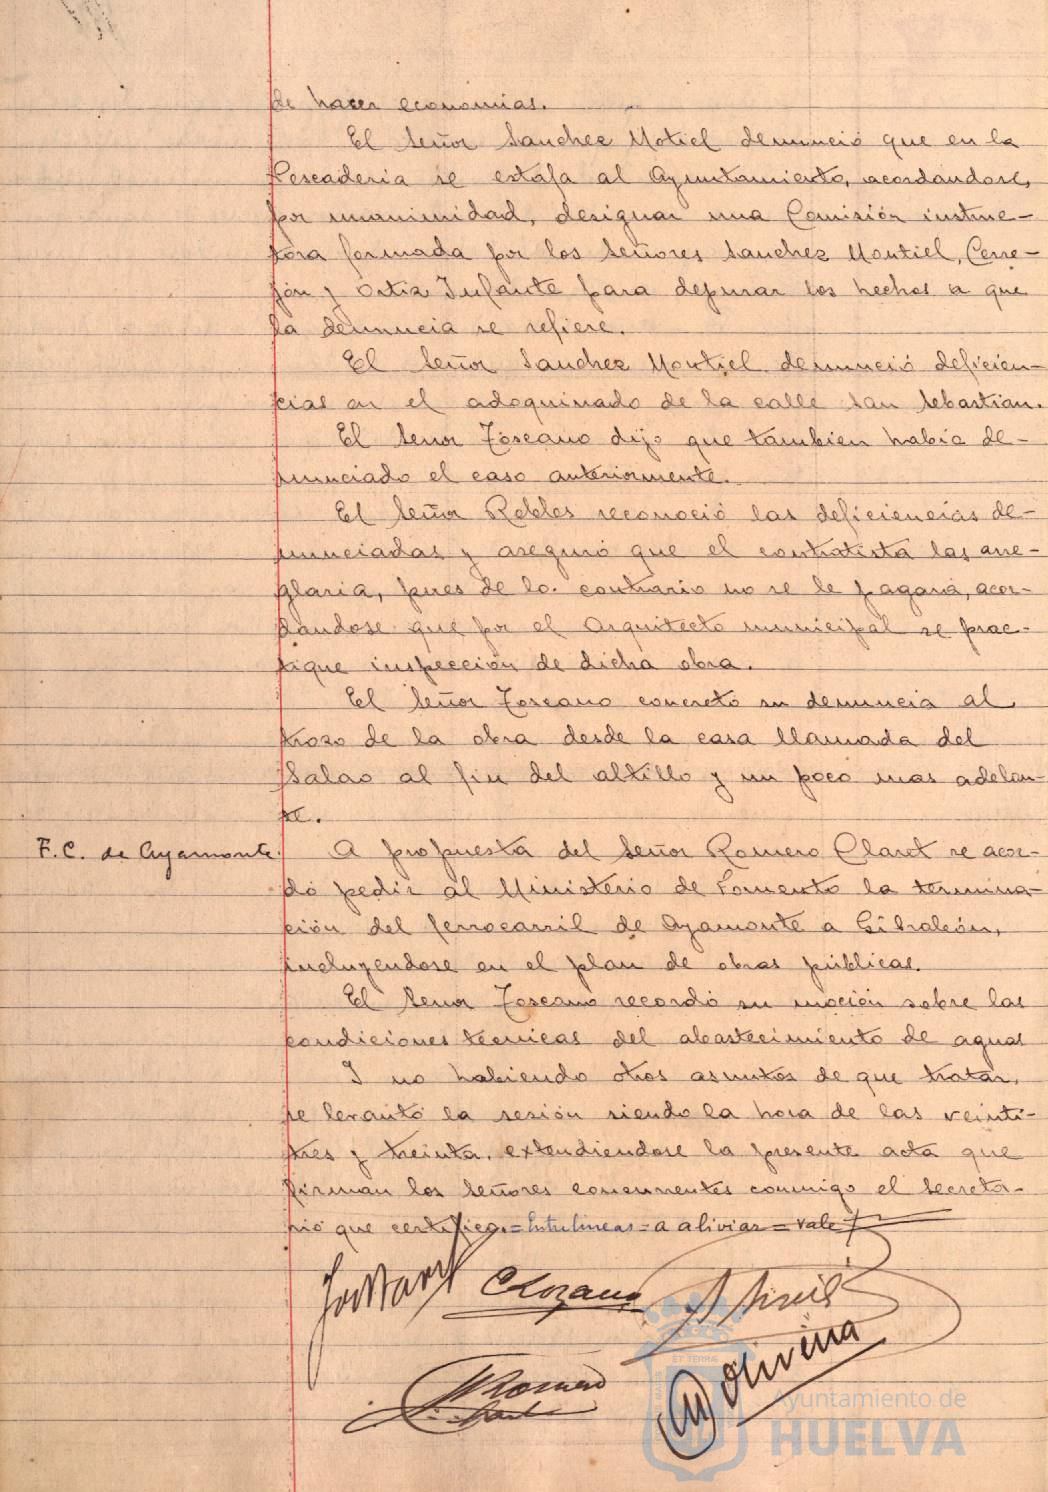 de hacer economias.
El Señor Sanchez Motiel denunció que en la
Pescaderia se estafa al Ayuntamiento, acordandose,
por unanimidad, designar una Comisión instruc-
tora formada por los Señores Sanchez Montiel, Cerre-
jón y Ortiz Infante para depurar los hechos a que
la denuncia se refiere.
El Señor Sanchez Montiel denunció deficien-
cias en el adoquinado de la calle San Sebastian.
El Señor Toscano dijo que tambien habia de-
nunciado el caso anteriormente.
El Señor Robles reconoció las deficiencias de-
nunciadas y aseguró que el contratista las arre-
glaria, pues de lo contrario no se le pagará, acor-
dandose que por el Arquitecto municipal se prac-
tique inspección de dicha obra.
El Señor Toscano concretó su denuncia al
trozo de la obra desde la casa llamada del
Salao al fin del altillo y un poco mas adelan-
te.
F.C. de Ayamonte.
A propuesta del Señor Romero Claret se acor-
dó pedir al Ministerio de Fomento la termina-
ción del ferrocarril de Ayamonte a Gibraleón,
incluyendose en el plan de obras públicas.
El Señor Toscano recordó su moción sobre las
condiciones tecnicas del abastecimiento de aguas
Y no habiendo otros asuntos de que tratar,
se levantó la sesión siendo la hora de las veinti-
tres y treinta, extendiendose la presente acta que
firman los Señores concurrentes conmigo el Secreta-
rio que certifico.=Entrelineas=a aliviar=vale
C Lozano
Romero
M Oliveira
ET TERRA
Ayuntamiento de
HUELVA